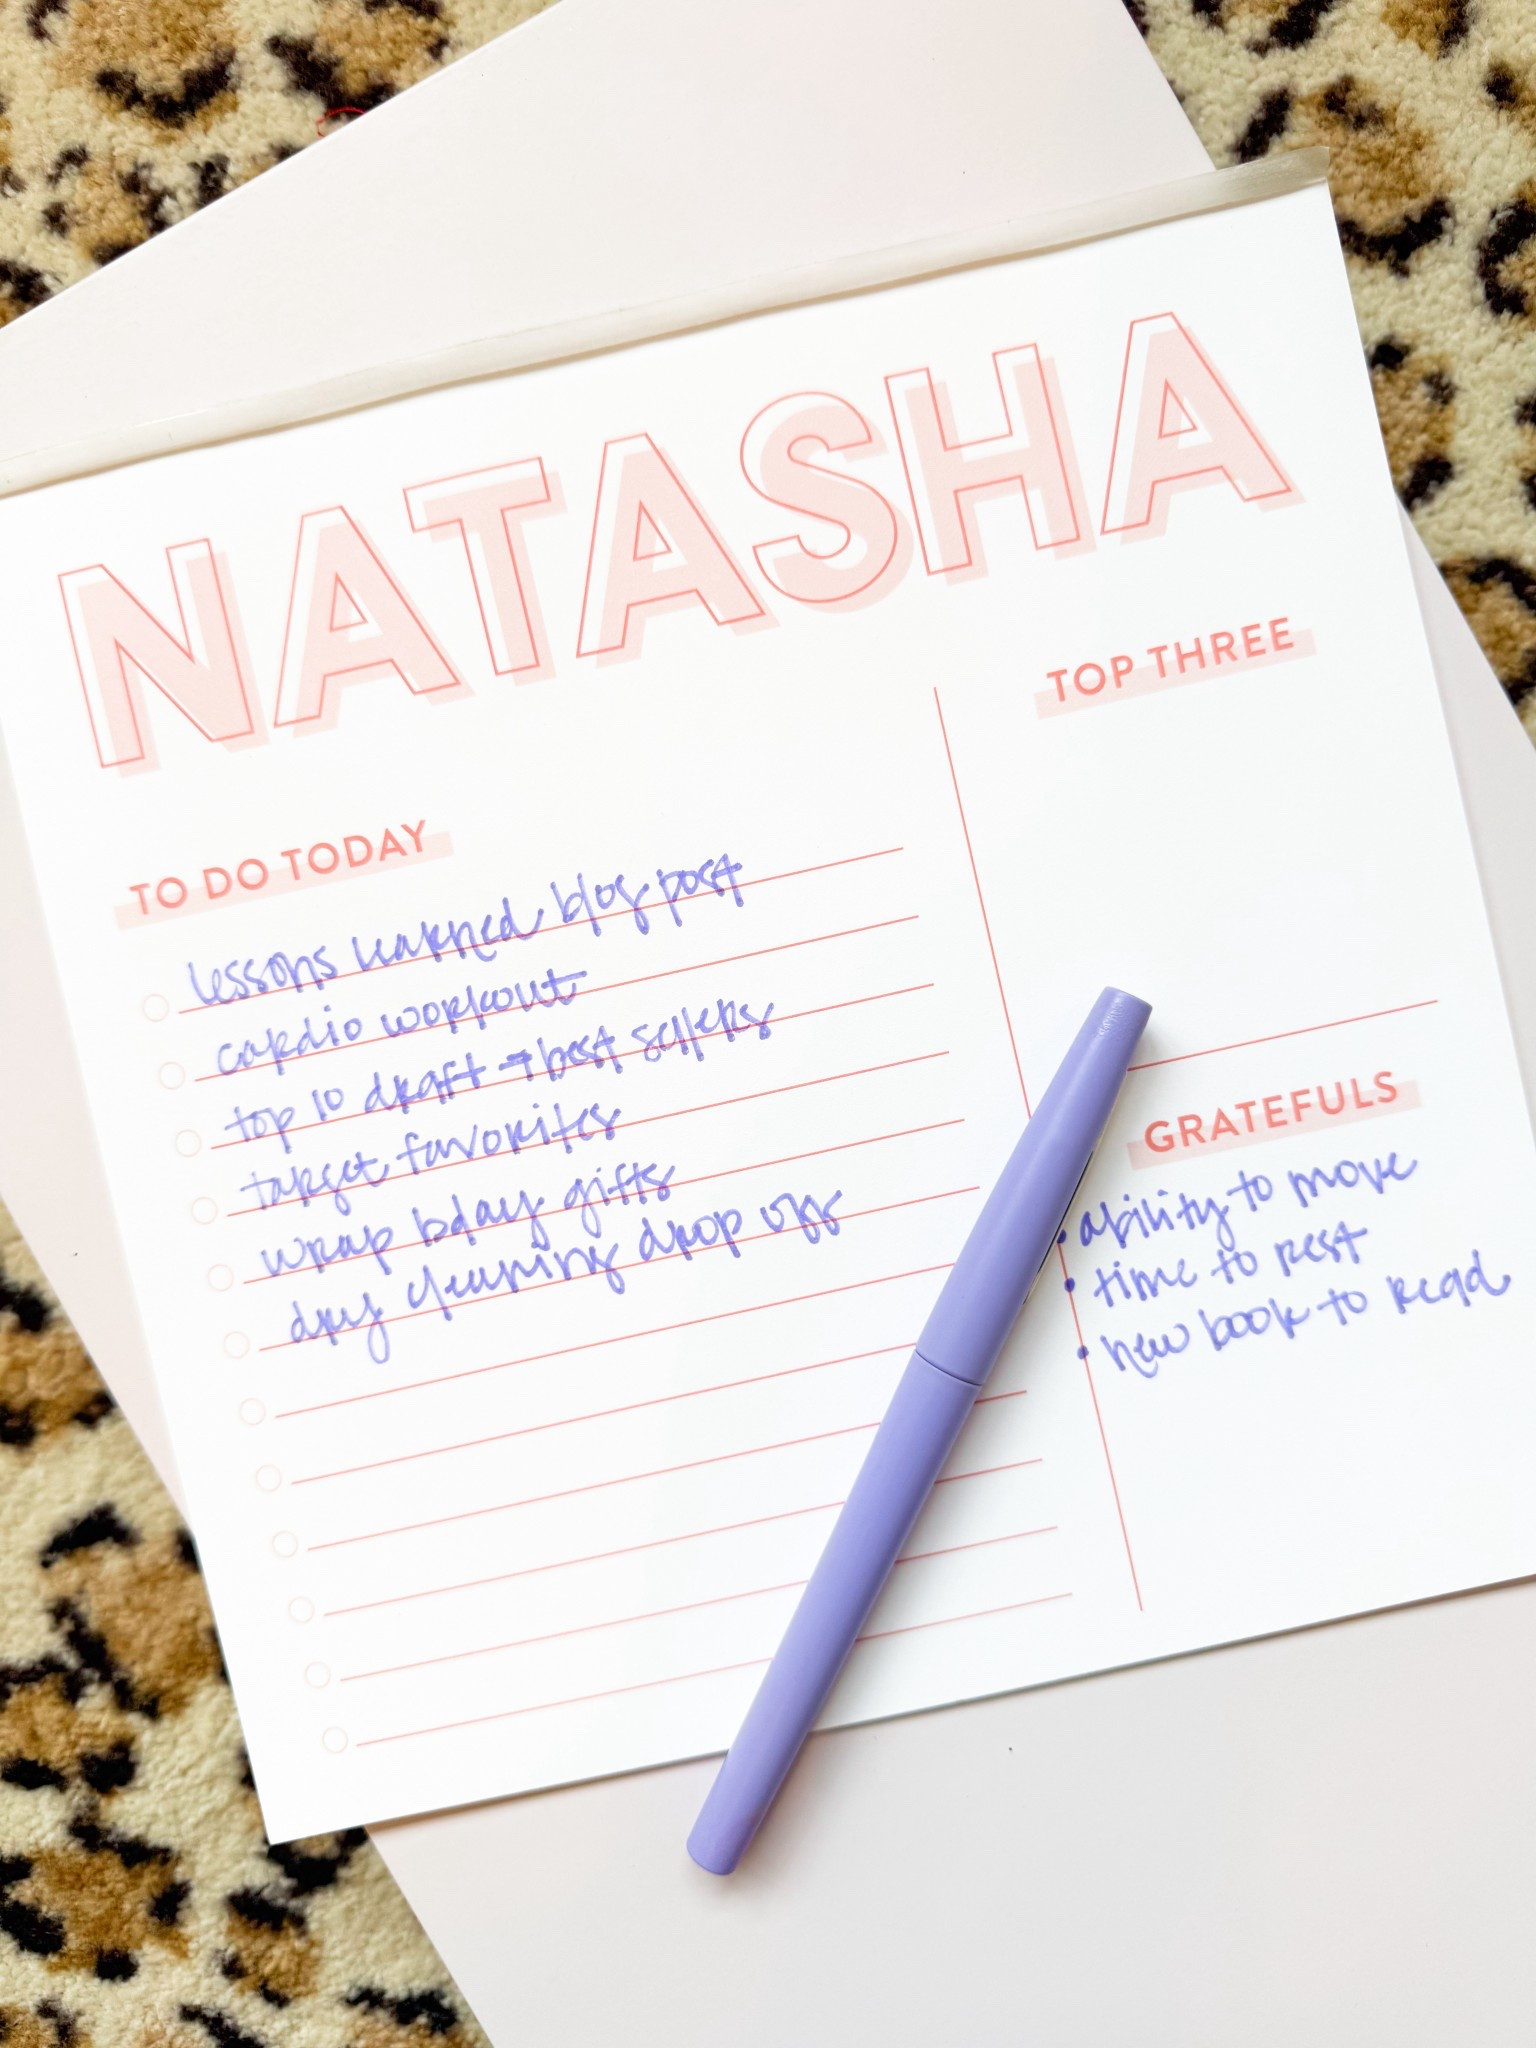 NATASHA
TO DO TODAY
lessons learned blog post
cardio workout
top 10 draft → best sellers
target favorites
wrap bday gifts
dry cleaning drop off
TOP THREE
GRATEFULS
• ability to move
• time to rest
• new book to read